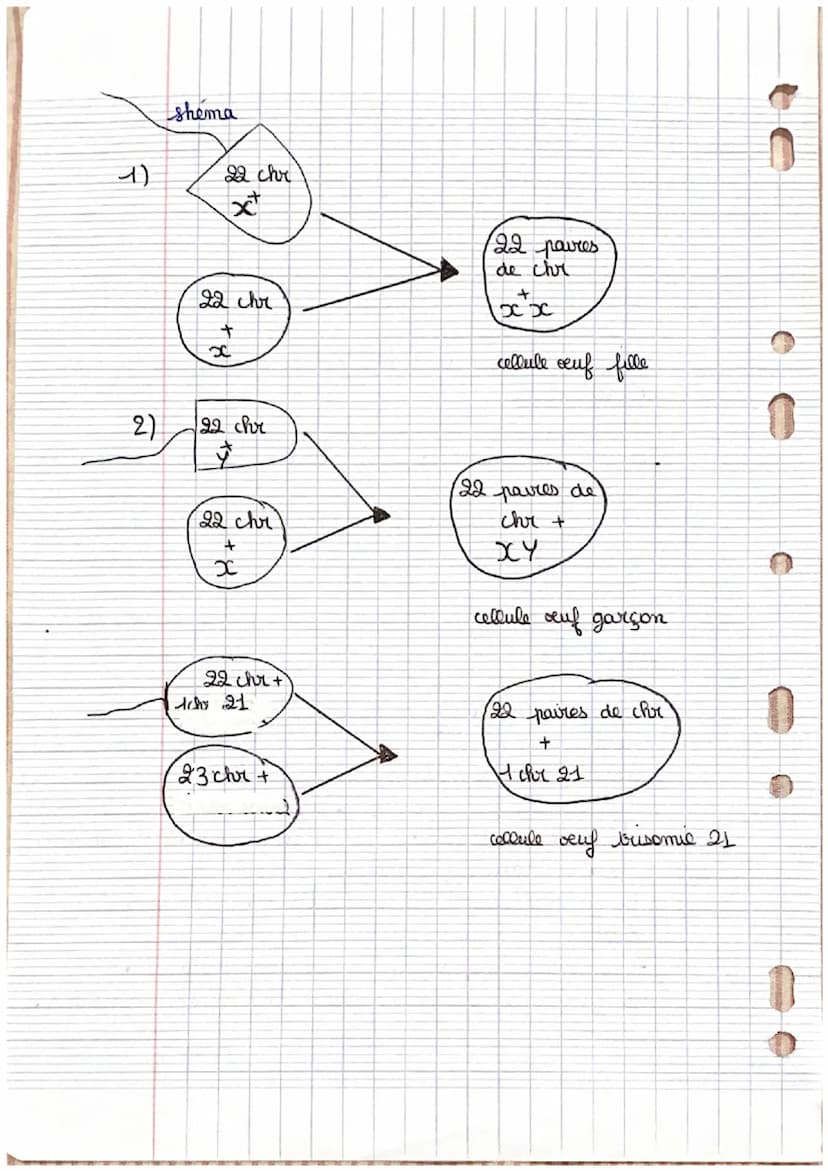 shéma
1)
22 chr
+
x
22 chr
+
x
22 paires
de chr
+
x x
cellule oeuf fille
2)
22 chr
+
y
22 chr
+
x
22 paires de
chr +
x y
cellule oeuf garçon
22 chr +
1chr 21
23 chr +
22 paires de chr
+
1 chr 21
cellule oeuf trisomie 21